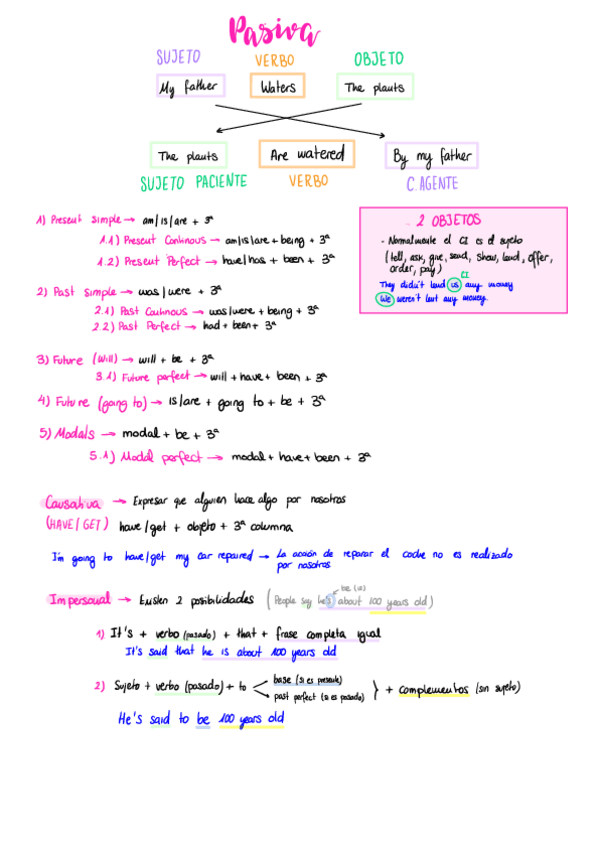 Pasiva
SUJETO VERBO OBJETO
My father Waters The plants
The plants Are watered By my father
SUJETO PACIENTE VERBO C.AGENTE
1) Present simple → am/is/are + 3ª
1.1) Present Continous → am/is/are + being + 3ª
1.2) Present Perfect → have/has + been + 3ª
2) Past simple → was/were + 3ª
2.1) Past Continous → was/were + being + 3ª
2.2) Past Perfect → had + been + 3ª
3) Future (Will) → will + be + 3ª
3.1) Future perfect → will + have + been + 3ª
4) Future (going to) → is/are + going to + be + 3ª
5) Modals → modal + be + 3ª
5.1) Modal perfect → modal + have + been + 3ª
2 OBJETOS
- Normalmente el CI es el sujeto
(tell, ask, give, send, show, lend, offer,
order, pay)
CI
They didn't lend us any money
We weren't lent any money.
Causativa → Expresar que alguien hace algo por nosotros
(HAVE/GET) have/get + objeto + 3ª columna
I'm going to have/get my car repaired → La acción de reparar el coche no es realizado
por nosotros
be (is)
Impersonal → Existen 2 posibilidades (People say he's about 100 years old)
1) It's + verbo (pasado) + that + frase completa igual
It's said that he is about 100 years old
2) Sujeto + verbo (pasado) + to base (si es presente)
past perfect (si es pasado) } + complementos (sin sujeto)
He's said to be 100 years old